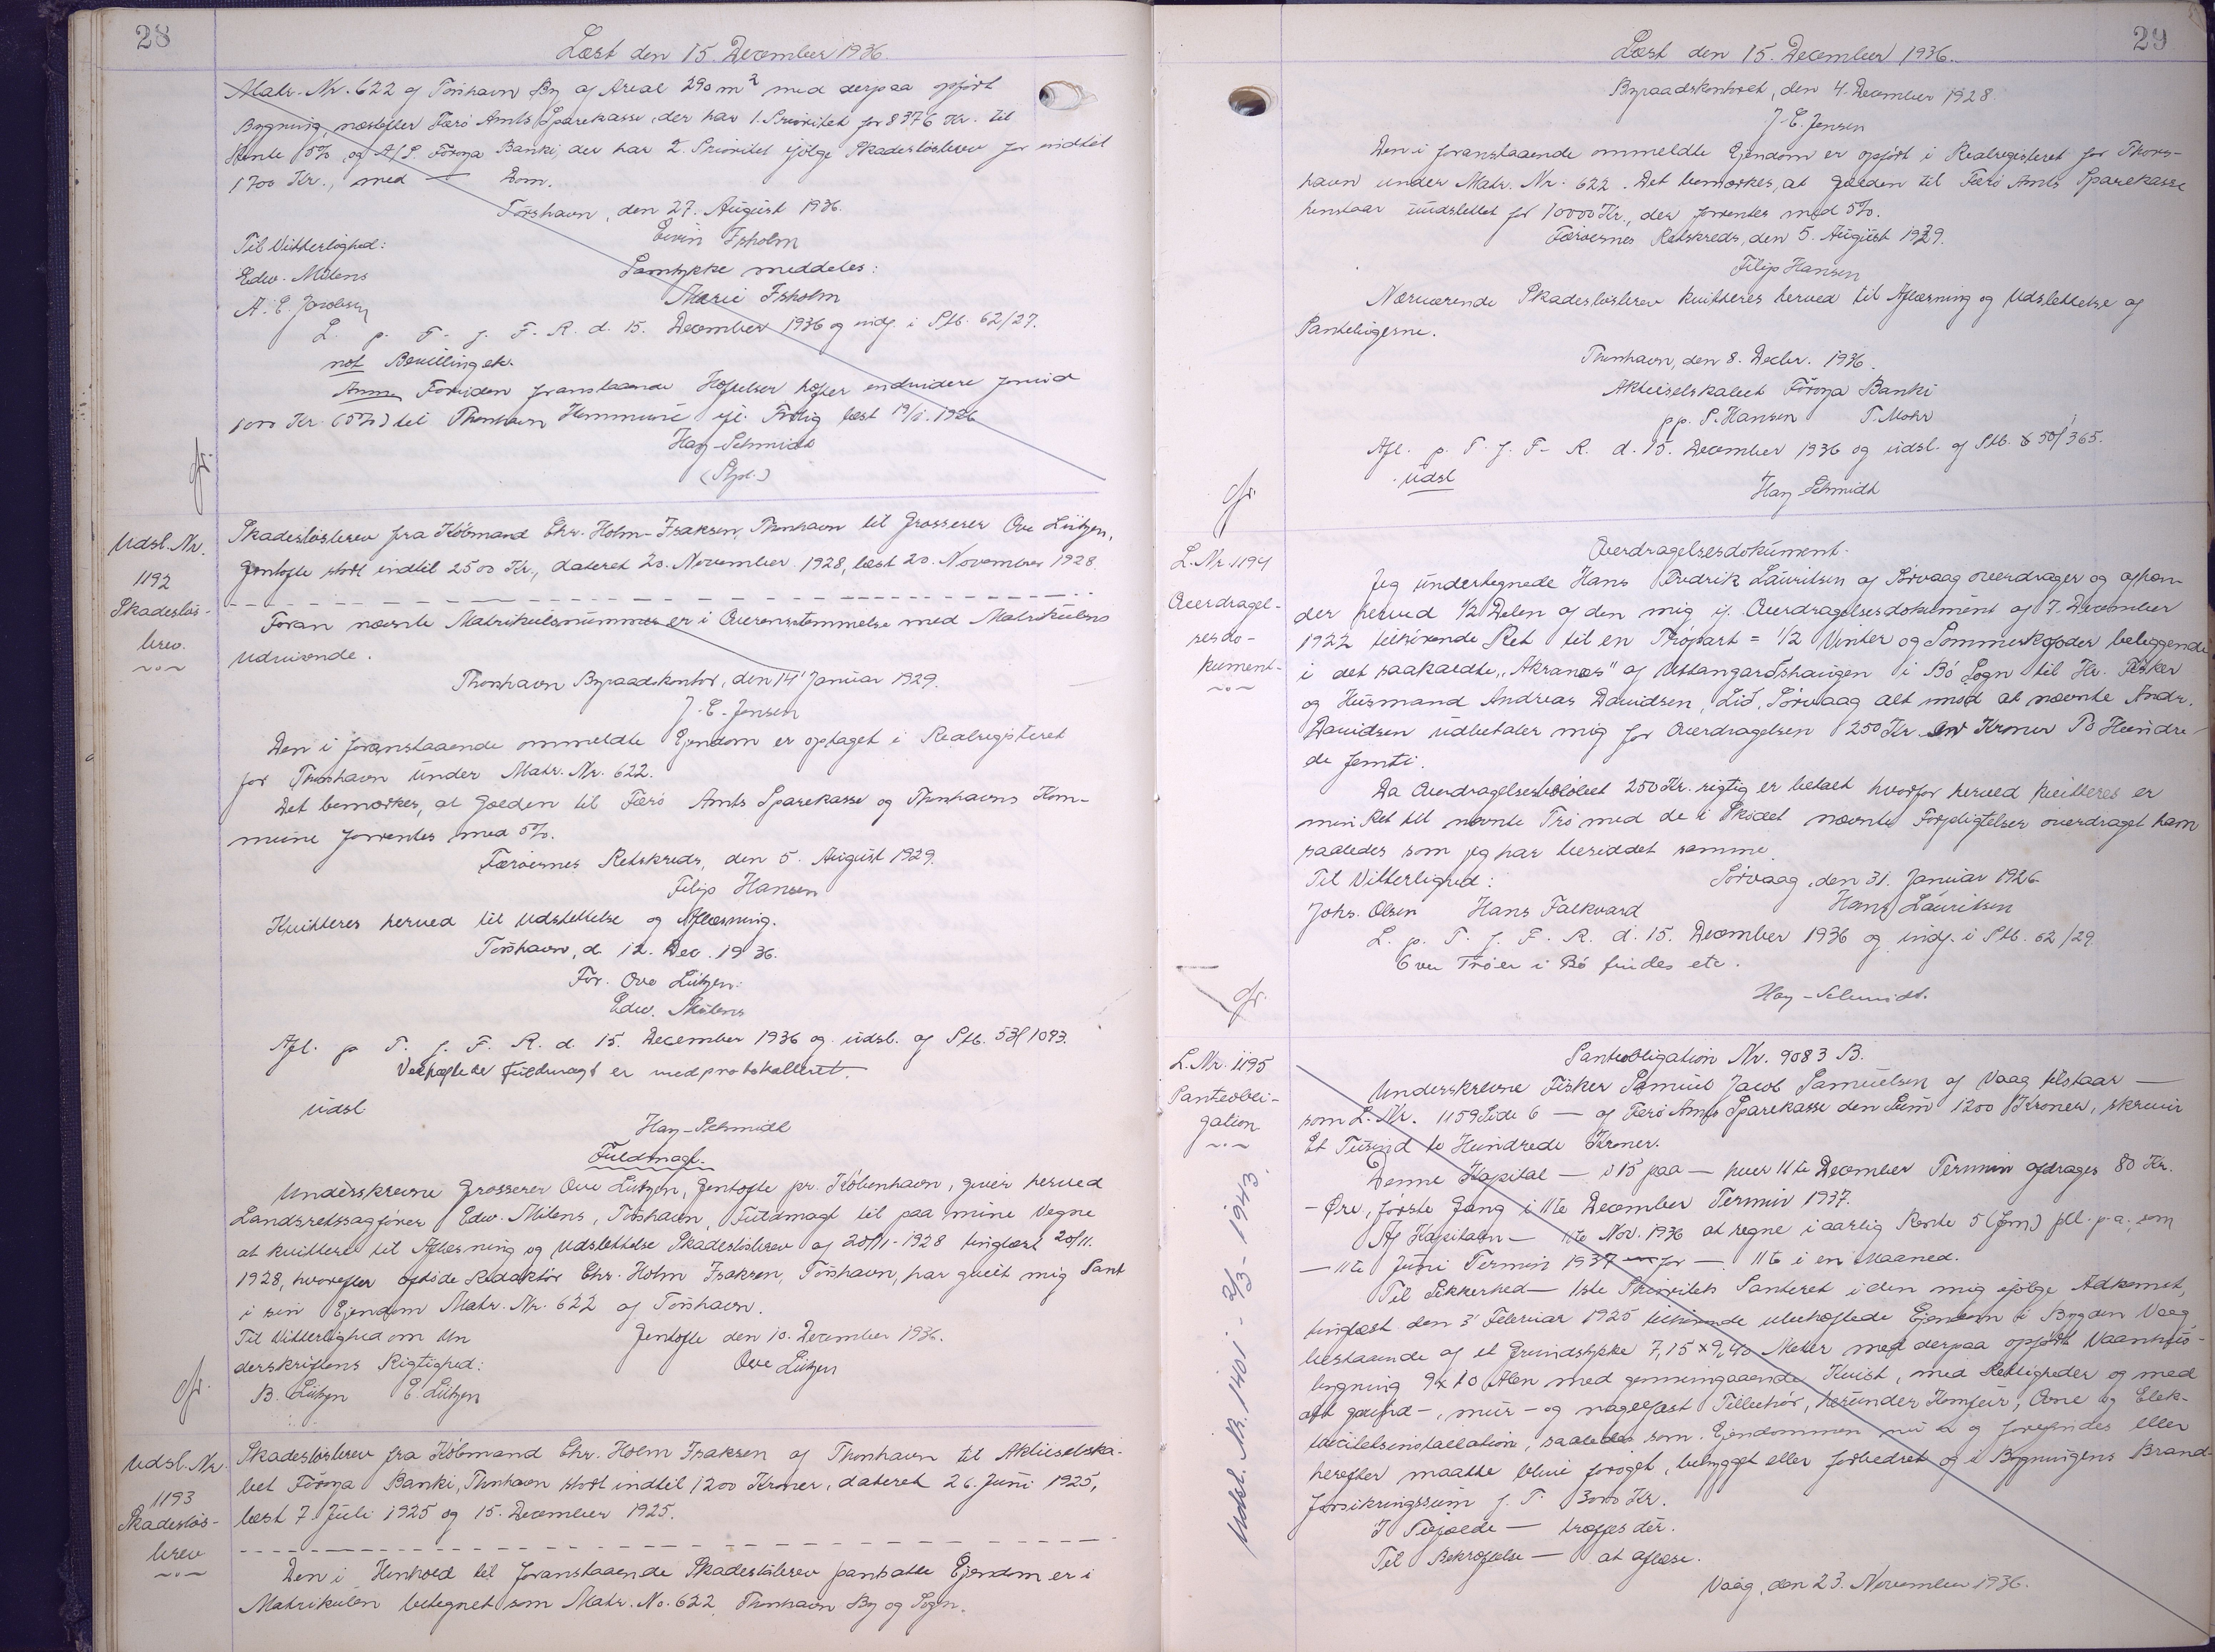 28
Læst den 15. December 1936.
Matr. Nr. 622 af Tórshavn By af Areal 290 m² med derpaa opført
Bygning, næstefter Færø Amts Sparekasse, der har 1. Prioritet for 8376 Kr. til
Rente 5%, og A/S. Föroya Banki, der har 2. Prioritet ifølge Skadesløsbrev for indtil
1700 Kr., med — Dom.
Tórshavn, den 27. August 1936.
Til Vitterlighed:
Eivin Isholm
Edw. Mitens
Samtykke meddeles:
A. E. Jacobsen
Marie Isholm
L. p. T. f. F. R. d. 15. December 1936 og indf. i Skb. 62/27.
not Bevilling etc.
Anm. Foruden foranstaaende Hæftelser hæfter endvidere forud
1000 Kr. (5%) til Thorshavn Kommune ifl. Obig læst 19/1. 1926
Hay-Schmidt
(Stpl.)
Udsl. Nr.
1192
Skadesløs-
brev.
Skadesløsbrev fra Købmand Chr. Holm-Isaksen, Thorshavn til Grosserer Ove Lützen,
Gentofte stort indtil 2500 Kr., dateret 20. November 1928, læst 20. November 1928.
Foran nævnte Matrikulsnummer er i Overensstemmelse med Matrikulens
Udvisende.
Thorshavn Byraadskontor, den 14' Januar 1929.
J. C. Jensen
Den i foranstaaende ommeldte Ejendom er optaget i Realregisteret
for Thorshavn under Matr. Nr. 622.
Det bemærkes, at Gælden til Færø Amts Sparekasse og Thorshavns Kom-
mune forrentes med 5%.
Færøernes Retskreds, den 5. August 1929.
Filip Hansen
Kvitteres herved til Udslettelse og Aflæsning.
Tórshavn, d. 12. Dec. 1936.
For Ove Lützen:
Edw. Mitens
Afl. p. T. f. F. R. d. 15. December 1936 og udsl. af Skb. 53/1093.
Vedhæftede Fuldmagt er medprotokolleret.
Udsl
Hay-Schmidt
Fuldmagt.
Underskrevne Grosserer Ove Lützen, Gentofte pr. København, giver herved
Landsretssagfører Edw. Mitens, Tórshavn, Fuldmagt til paa mine Vegne
at kvittere til Aflæsning og Udslettelse Skadesløsbrev af 20/11-1928 tinglæst 20/11.
1928, hvorefter afdøde Redaktør Chr. Holm Isaksen, Tórshavn, har givet mig Pant
i sin Ejendom Matr. Nr. 622 af Tórshavn.
Til Vitterlighed om Un
Gentofte den 10. December 1936.
derskriftens Rigtighed:
Ove Lützen
B. Lützen E. Lützen
Udsl. Nr.
1193
Skadesløs-
brev
Skadesløsbrev fra Købmand Chr. Holm Isaksen af Thorshavn til Aktieselska-
bet Föroya Banki, Thorshavn stort indtil 1200 Kroner, dateret 26. Juni 1925,
læst 7. Juli 1925 og 15. December 1925.
Den i Henhold til foranstaaende Skadesløsbrev pantsatte Ejendom er i
Matrikulen betegnet som Matr. No. 622, Thorshavn By og Sogn.
29
Læst den 15. December 1936.
Byraadskontoret, den 4. December 1928.
J. C. Jensen
Den i foranstaaende ommeldte Ejendom er opført i Realregisteret for Thors-
havn under Matr. Nr. 622. Det bemærkes, at Gælden til Færø Amts Sparekasse
henstaar uudslettet for 10000 Kr., der forrentes med 5%.
Færøernes Retskreds, den 5. August 1929.
Filip Hansen
Nærværende Skadesløsbrev kvitteres herved til Aflæsning og Udslettelse af
Pantebøgerne.
Thorshavn, den 8. Decbr. 1936.
Aktieselskabet Föroya Banki
pp. P. Hansen T. Mohr
Afl. p. T. f. F. R. d. 15. December 1936 og udsl. af Skb. 50/365.
Udsl
Hay Schmidt
L. Nr. 1194
Overdragel-
sesdo-
kument.
Overdragelsesdokument.
Jeg undertegnede Hans Fredrik Lauritsen af Sørvaag overdrager og afhæn-
der herved 1/2 Delen af den mig if. Overdragelsesdokument af 7. December
1922 tilhørende Ret til en Trøpart = 1/2 Vinter og Sommerkopder beliggende
i det saakaldte "Akranes" af Uttangardshaugen i Bø Sogn til Hr. Fisker
og Husmand Andreas Davidsen, Lid, Sørvaag alt imod at nævnte Andr.
Davidsen udbetaler mig for Overdragelsen 250 Kr. er Kroner To Hundre-
de femti.
Da Overdragelsesbeløbet 250 Kr. rigtig er betalt hvorfor herved kvitteres er
min Ret til nævnte Trø med de i Skødet nævnte Forpligtelser overdraget ham
saaledes som jeg har besiddet samme.
Til Vitterlighed:
Sørvaag, den 31. Januar 1926.
Johs. Olsen Hans Falkvard
Hans Lauritsen
L. p. T. f. F. R. d. 15. December 1936 og indf. i Skb. 62/29.
Over Trøer i Bø findes etc.
Hay-Schmidt.
L. Nr. 1195
Panteobli-
gation
Udsl. Nr. 1401 - 2/3 - 1943.
Panteobligation Nr. 9083 B.
Underskrevne Fisker Samuel Jacob Samuelsen af Vaag tilstaar —
som L. Nr. 1159 Side 6 — af Færø Amts Sparekasse den Sum 1200 Kroner, skriver
Et Tusind to Hundrede Kroner.
Denne Kapital — § 15 paa — hver 11te December Termin afdrages 80 Kr.
- Øre, første Gang i 11te December Termin 1937.
Af Kapitalen — 11te Nov. 1936 at regne i aarlig Rente 5 (fem) pct. p.a. som
— 11te Juni Termin 1937 for — 11te i en Maaned.
Til Sikkerhed — 1ste Prioritets Panteret i den mig ifølge Adkomst,
tinglæst den 3' Februar 1925 tilhørende ubehæftede Ejendom i Bygden Vaag
bestaaende af et Grundstykke 7,15 × 9,40 Meter med derpaa opført Vaanhus-
bygning 9 × 10 Alen med gennemgaaende Kvist, med Rettigheder og med
alt grund-, mur- og nagelfast Tilbehør, herunder Komfur, Ovne og Elek-
tricitetsinstallation, saaledes som Ejendommen nu er og forefindes eller
herefter maatte blive forøget, bebygget eller forbedret og i Bygningens Brand-
forsikringssum f. T. 3000 Kr.
I Tilfælde — træffes dér.
Til Bekræftelse — at aflæse.
Vaag, den 23. November 1936.